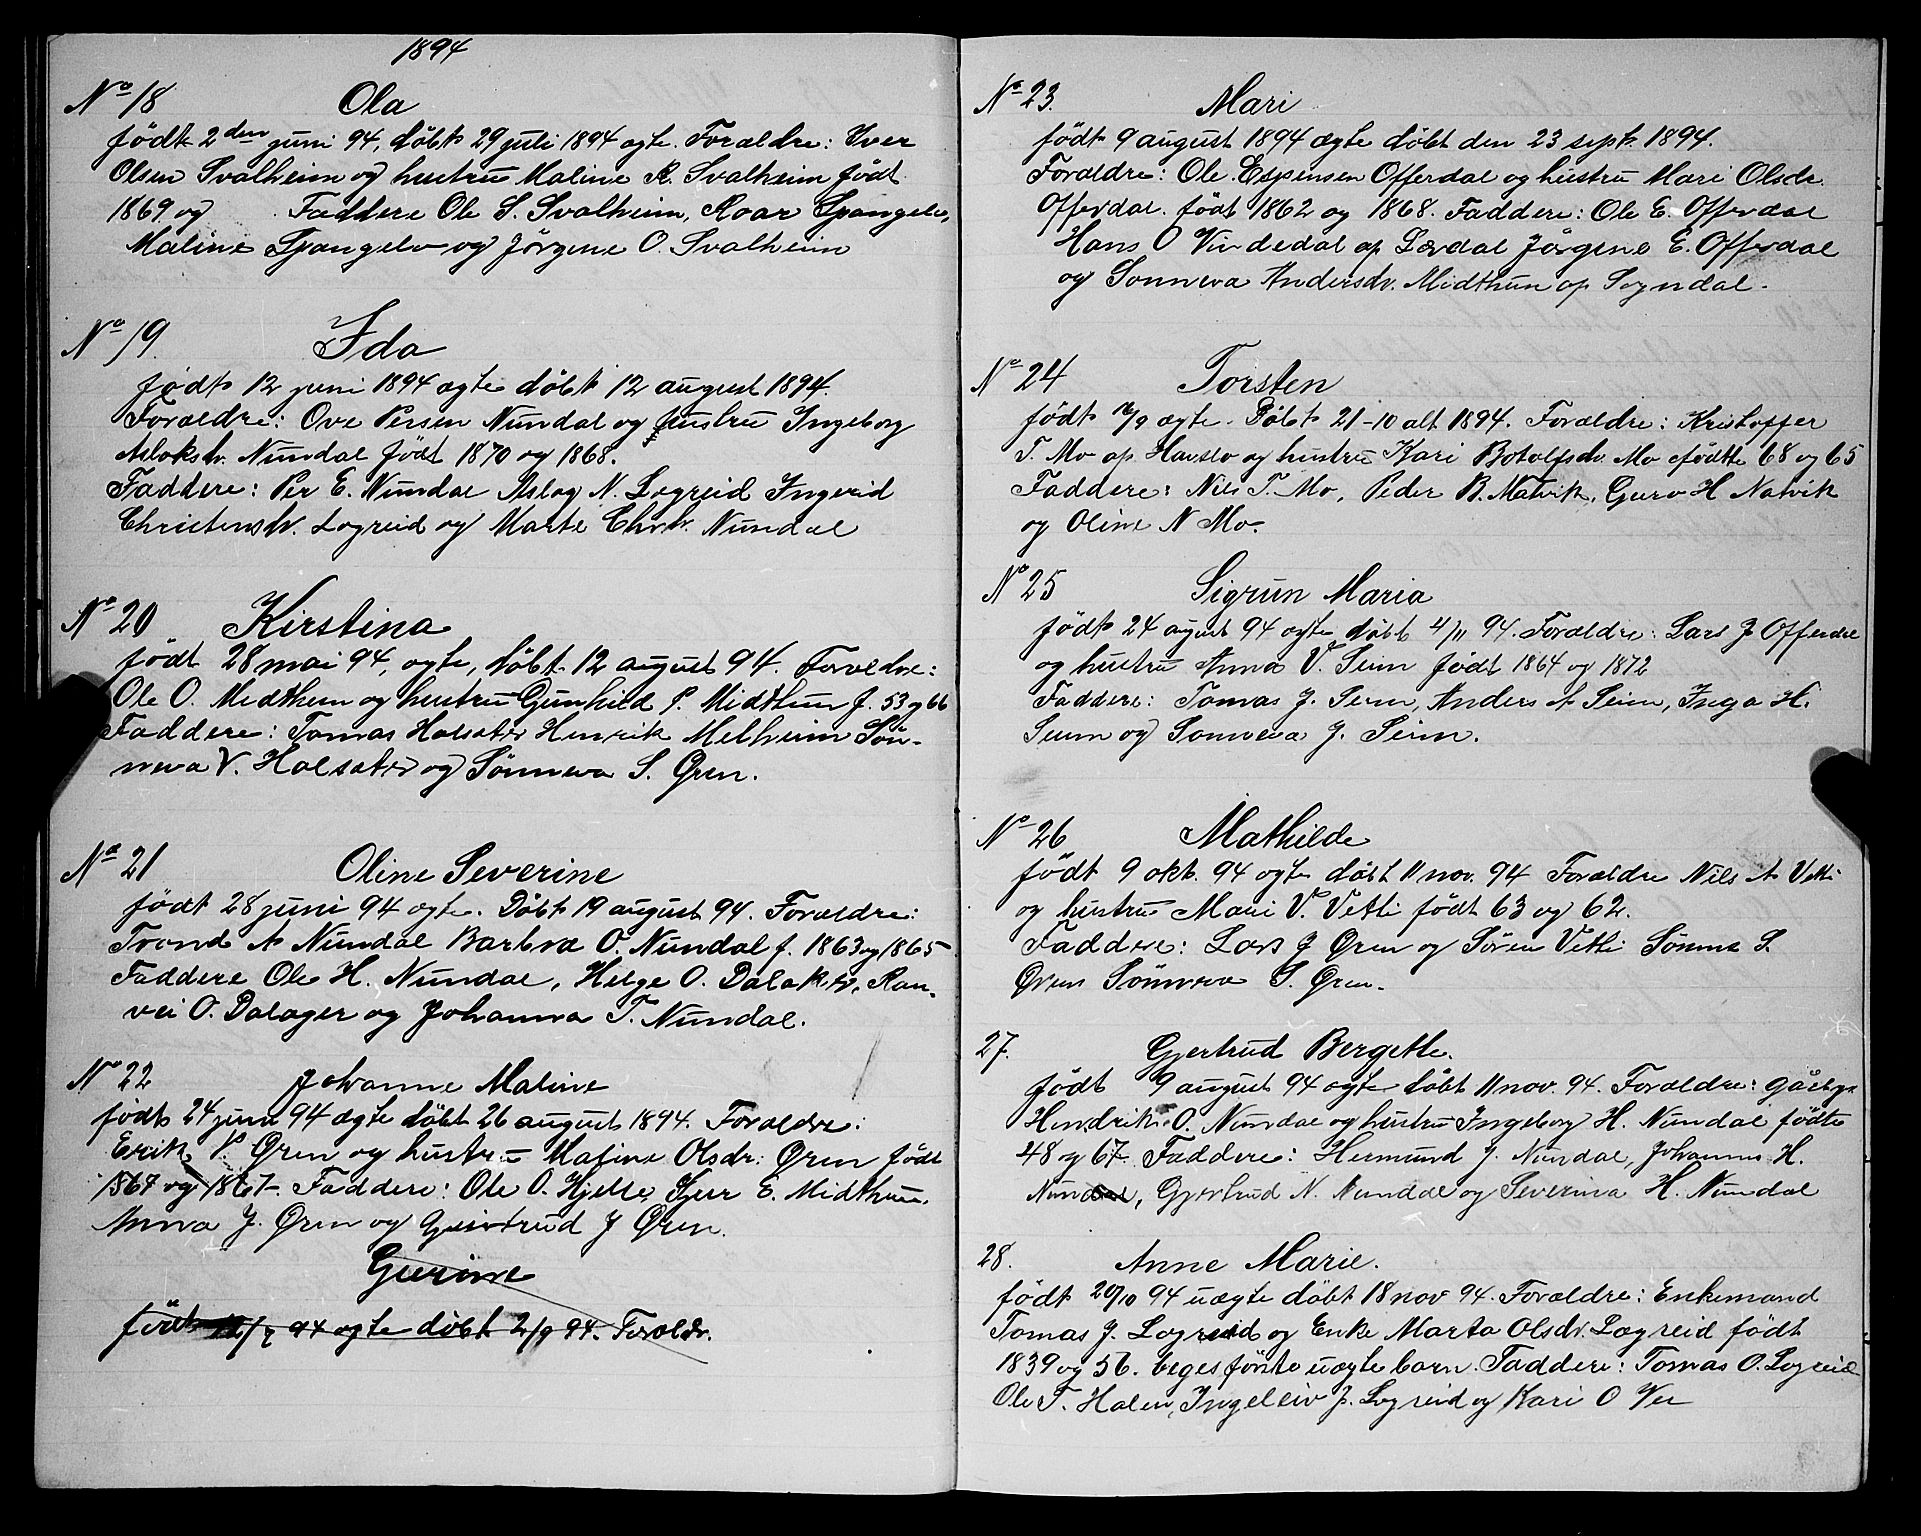 1894
No 18 Ola
født 2den juni 94, döbt 29 juli 1894 ægte. Forældre: Iver
Olsen Svalheim og hustru Maline R. Svalheim født
1869 og Faddere Ole S. Svalheim, Roar Spangelo,
Maline Spangelo og Jörgine O. Svalheim
No 19. Ida
født 12 juni 1894 ægte döbt 12 august 1894.
Forældre: Ove Persen Nundal og hustru Ingeborg
Aslaksdr. Nundal født 1870 og 1868.
Faddere: Per E. Nundal Aslag N. Lægreid Ingerid
Christensdr. Lægreid og Marte Chrdr. Nundal
No 20 Kirstina
født 28 mai 94, ægte, döbt 12 august 94. Forældre:
Ole O. Midthun og hustru Gunhild P. Midthun f. 53 og 66
Faddere: Tomas Holsæter Henrik Melheim Sön-
neva V. Holsæter og Sönneva S. Øren.
No 21 Oline Severine
født 28 juni 94 ægte. Döbt 19 august 94. Forældre:
Trond A Nundal Barbra O. Nundal f. 1863 og 1865
Faddere Ole H. Nundal, Helge O. Dalaker, Ran-
vei O. Dalager og Johanna T. Nundal.
No 22 Johanne Maline
født 24 juni 94 ægte döbt 26 august 1894. Forældre:
Erik P. Øren og hustru Maline Olsdr. Øren født
1867 og 1867. Faddere: Ole O. Hjelle, Sjur E. Midthun,
Anna J. Øren og Gjertrud J Øren.
Gurine
født 12/7 94 ægte döbt 2/9 94. Forældr.
No 23. Mari
født 9 august 1894 ægte döbt den 23 sept. 1894.
Forældre: Ole Espensen Offerdal og hustru Mari Olsdr.
Offerdal. født 1862 og 1868. Faddere: Ole E. Offerdal
Hans O Vindedal af Lærdal Jörgine E. Offerdal
og Sönneva Andersdr. Midthun af Sogndal.
No 24 Torsten
født 16/9 ægte. Döbt 21-10 alt 1894. Forældre: Kristoffer
T. Mo af Hafslo og hustru Kari Botolfsdr. Mo fødte 68 og 65
Faddere: Nils T. Mo, Peder B. Natvik, Guro H Natvik
og Oline N Mo.
No 25 Sigrun Maria
født 24 august 94 ægte döbt 4/11 94. Forældre: Lars J Offerdal
og hustru Anna V. Seim født 1864 og 1872
Faddere: Tomas J. Seim, Anders A Seim, Inga H.
Seim og Sönneva J. Seim.
No 26 Mathilde
født 9 okt. 94 ægte döbt 11 nov. 94 Forældre Nils A Vetti
og hustru Mari V. Vetti født 63 og 62.
Faddere: Lars J Øren og Sören Vetti Synna S.
Øren Sönneva S. Øren.
27. Gjertrud Bergette.
født 9 august 94 ægte döbt 11 nov. 94. Forældre:
Hendrik O. Nundal og hustru Ingeborg H. Nundal fødte
48 og 67. Faddere: Hermund J. Nundal, Johannes H.
Nundal, Gjertrud N. Nundal og Severina H. Nundal
28. Anne Marie.
født 20/10 94 uægte döbt 18 nov 94. Forældre: Enkemand
Tomas J. Lægreid og Enke Marta Olsdr. Lægreid født
1839 og 56. begges förste uægte barn. Faddere: Tomas O. Lægreid
Ole T. Holen, Ingeleiv J. Lægreid og Kari O Ve